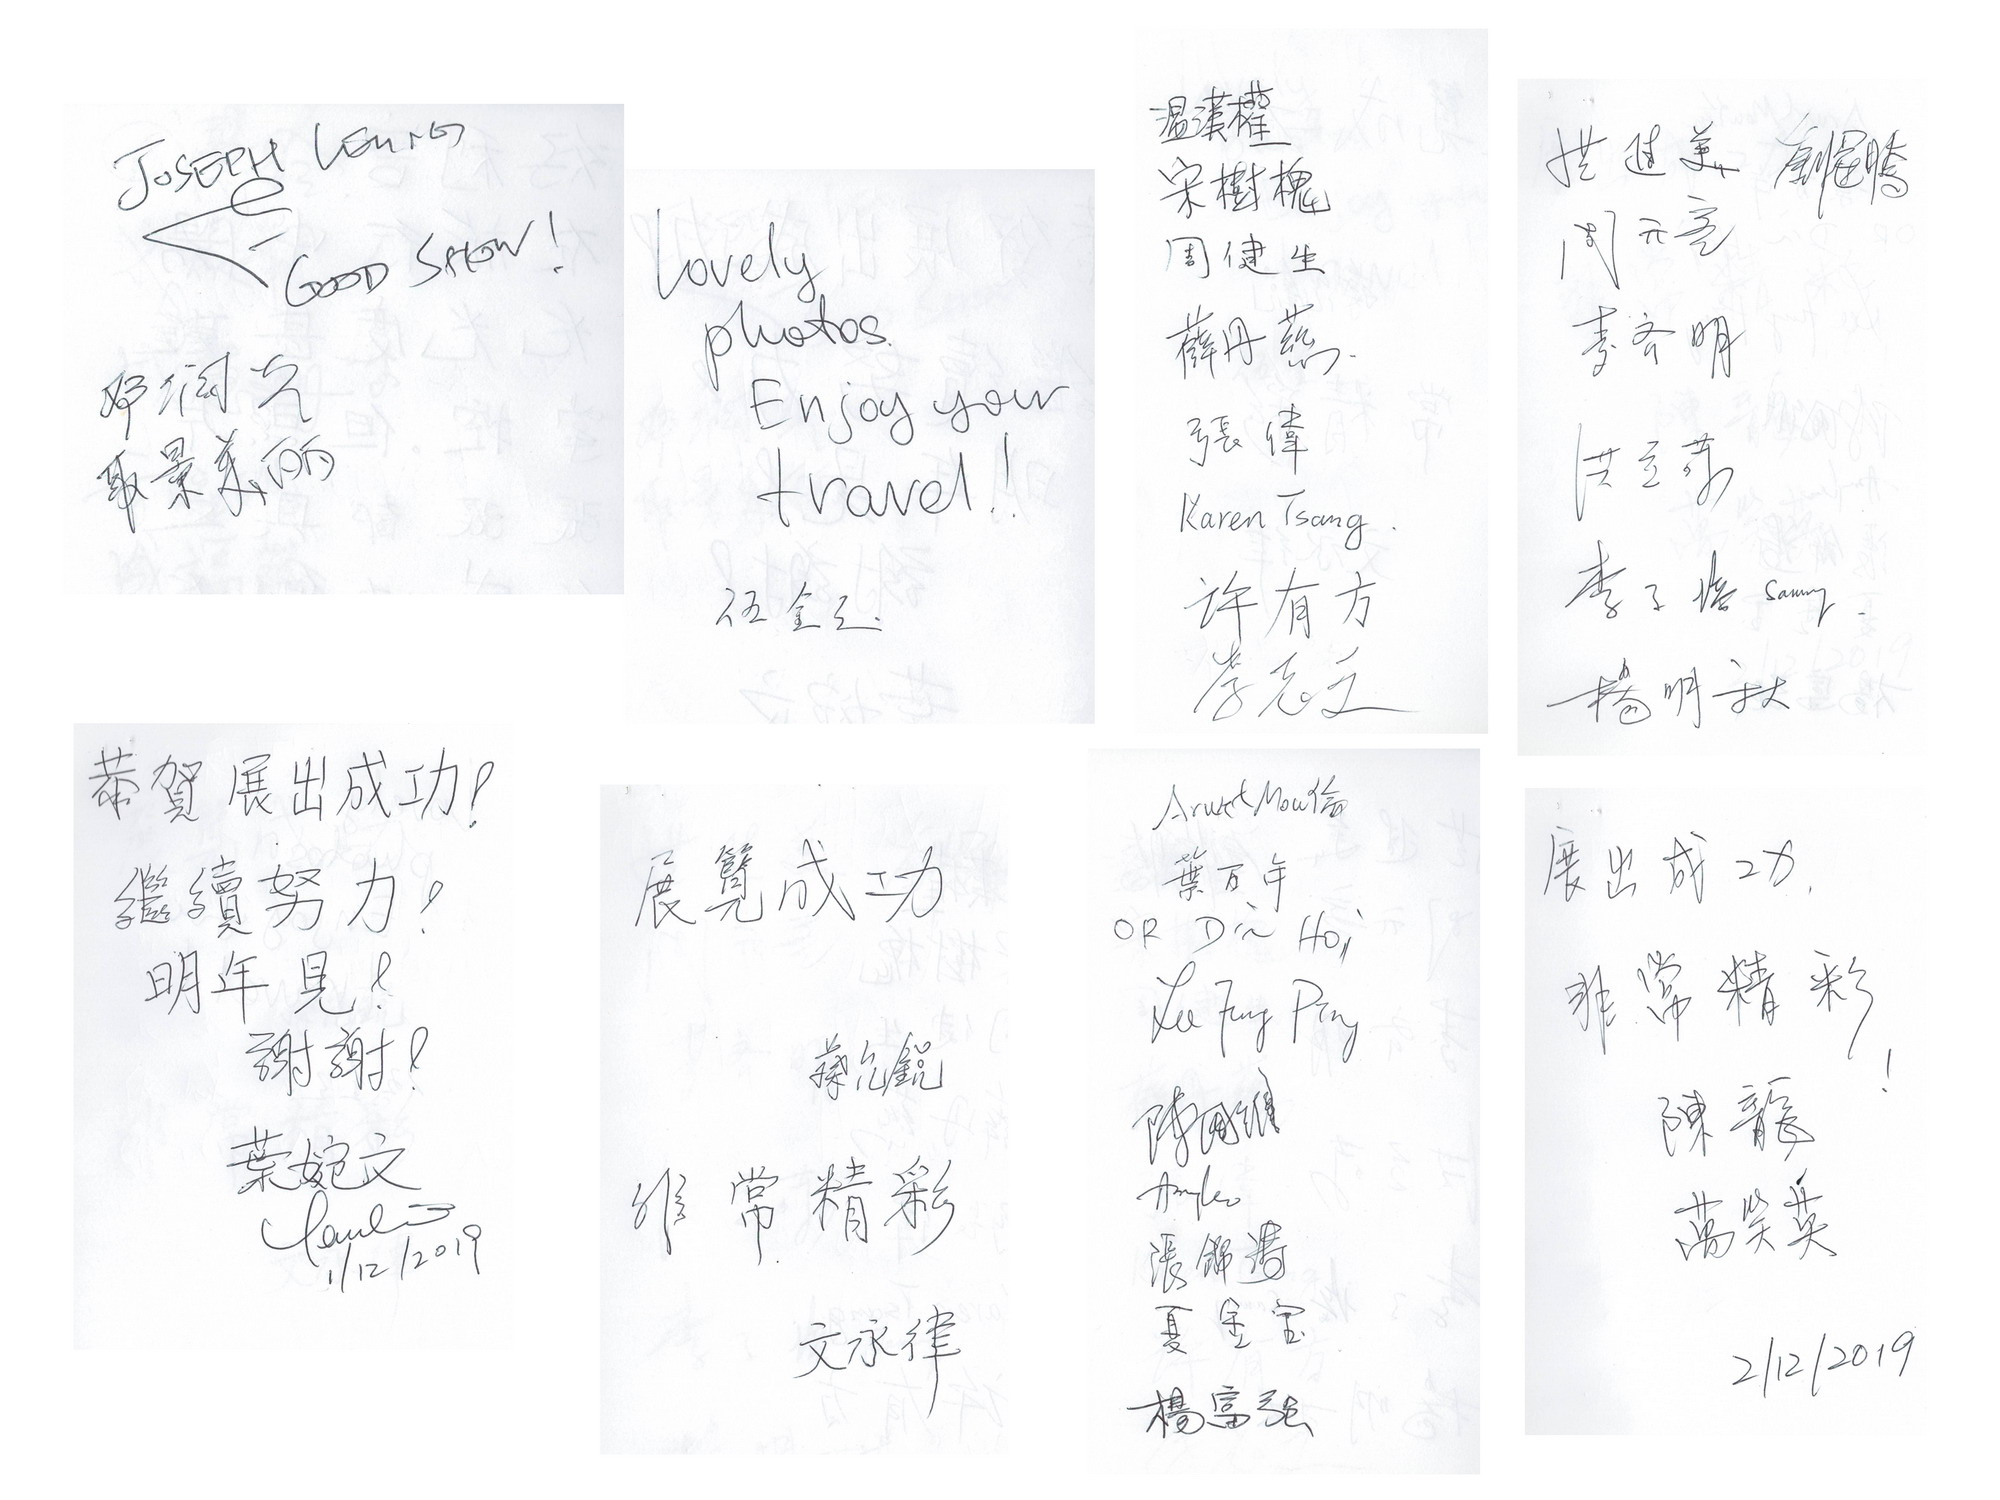 JOSEPH LEUNG
GOOD SHOW!
邓润光
取景美丽
Lovely
photos.
Enjoy your
travel!!
伍金
温漢權
宋樹槐
周健生
薛丹燕.
張偉
Karen Tsang.
许有方
李志文
洪 美
周元亮
李 明
洪
李子 Sammy.
楊明秋
恭賀展出成功!
繼續努力!
明年見!
謝謝!
葉婉文
1/12/2019
展覽成功
蔡
非常精彩
文永律
葉百年
OR Din Hoi
Lee Fung Ping
陳國維
張錦濤
夏金宝
楊富强
展出成功.
非常精彩!
陳龍
萬笑英
2/12/2019